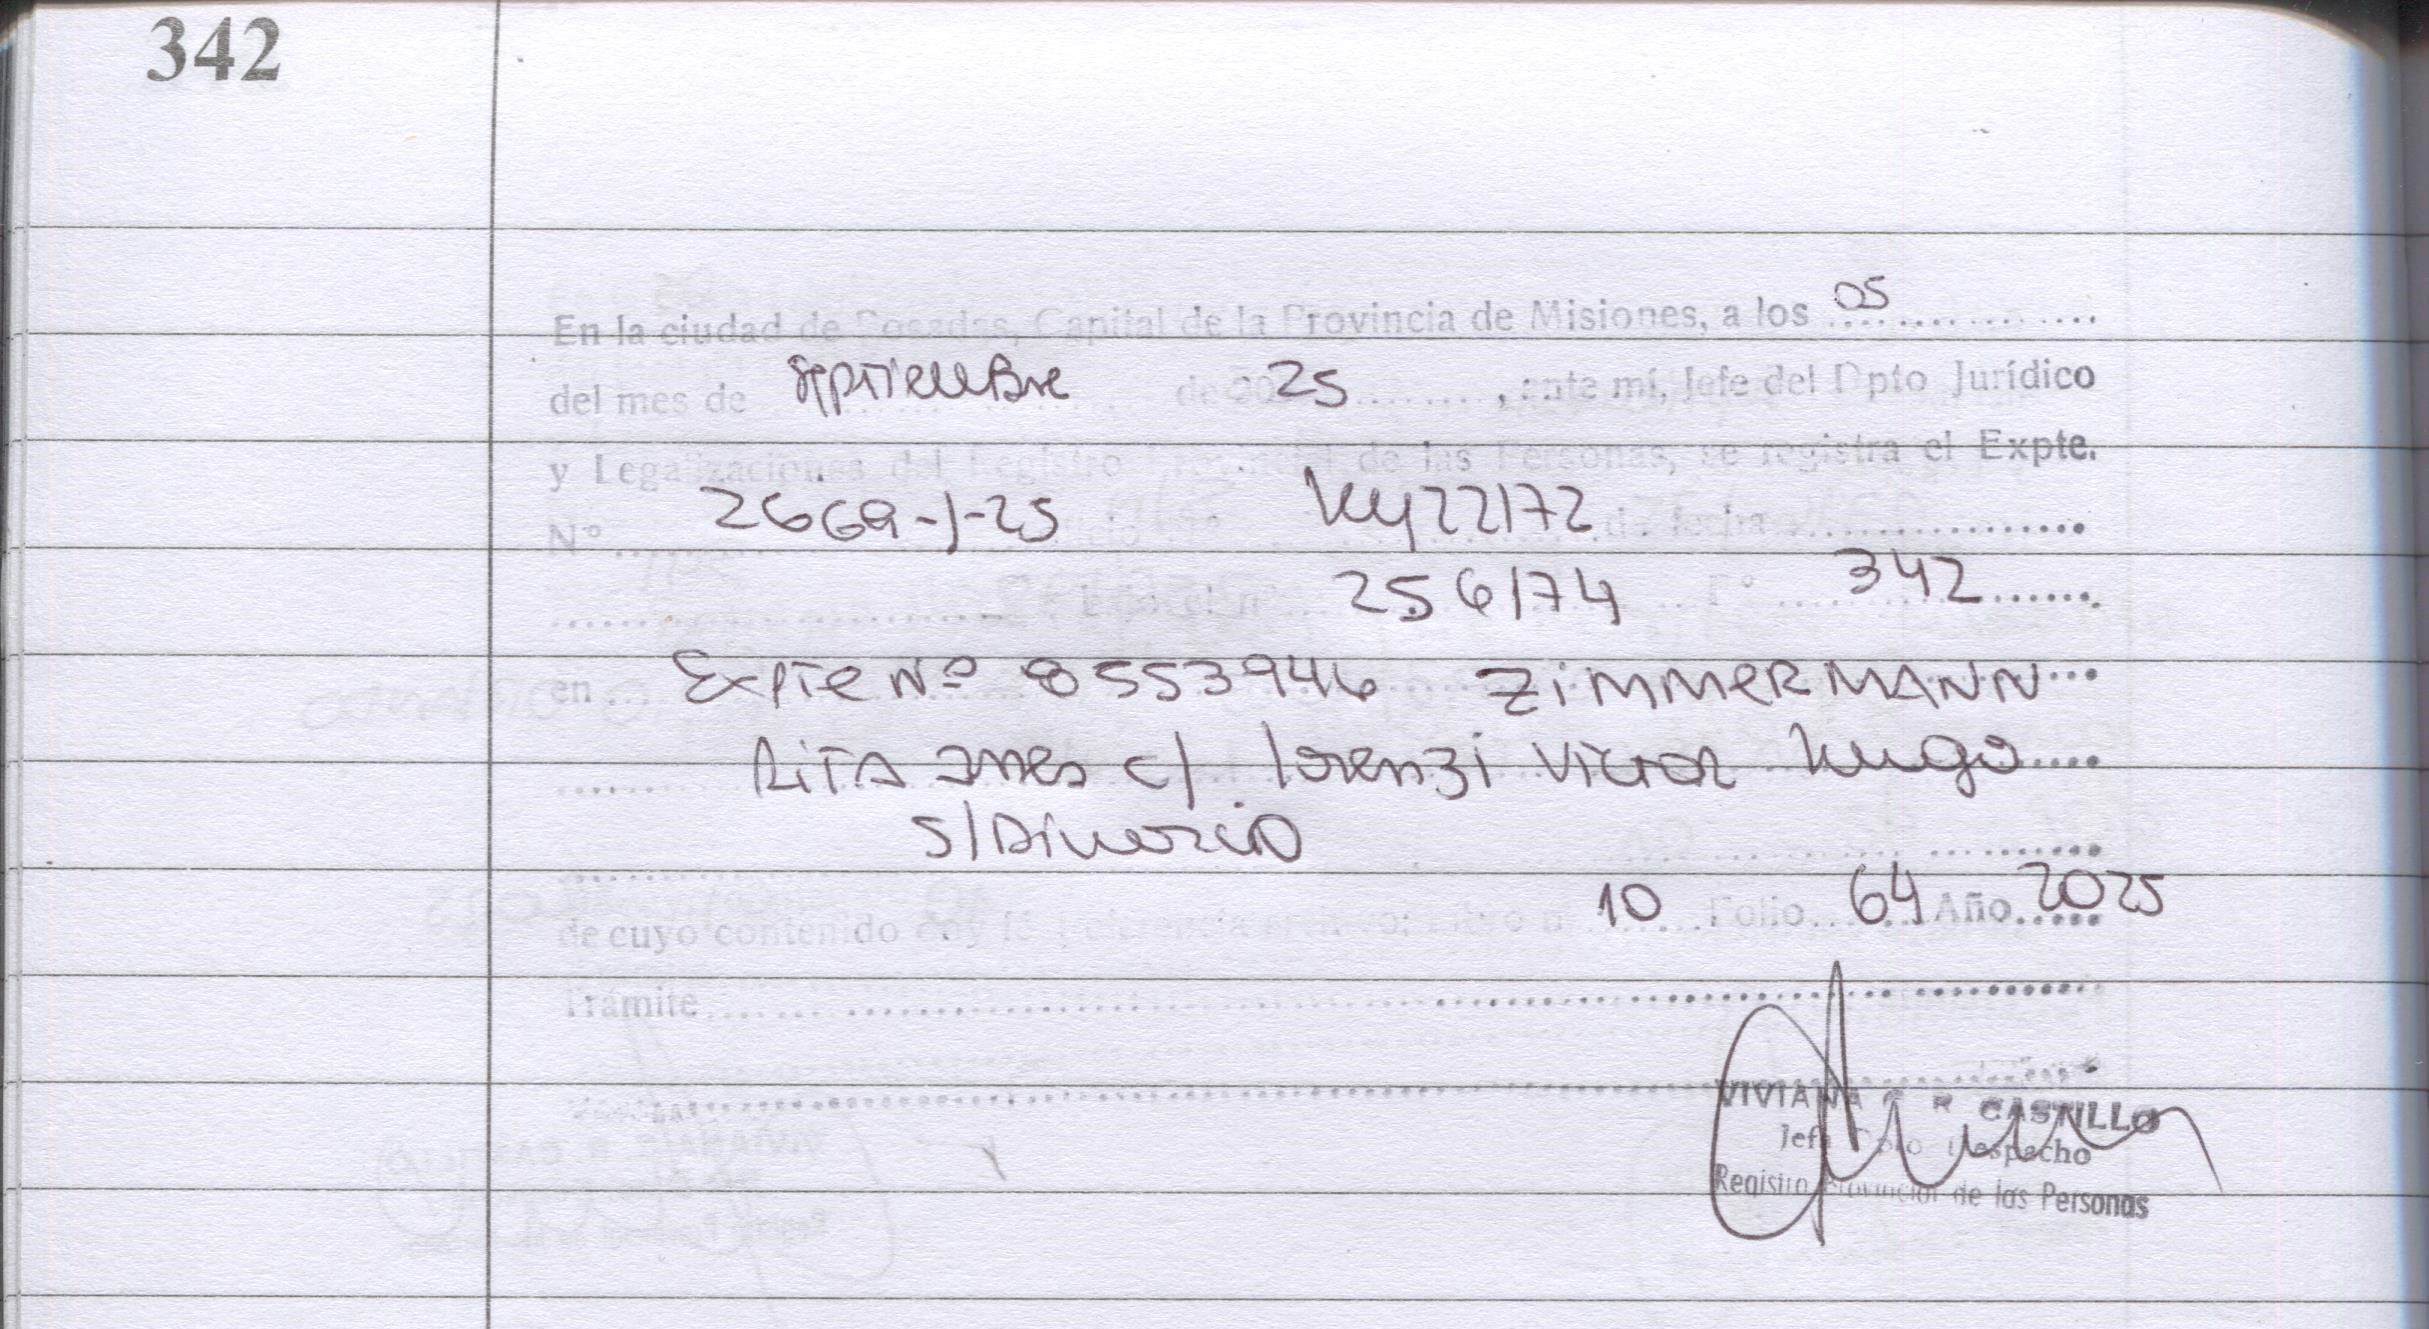 342
En la ciudad de Posadas, Capital de la Provincia de Misiones, a los 05
del mes de septiembre de 20 25, ante mí, Jefe del Dpto Jurídico
y Legalizaciones del Registro Provincial de las Personas, se registra el Expte.
Nº 2669-J-25 Ley 22172 de fecha
256/74 Fº 342
en Expte Nº 8553946 ZIMMERMANN
RITA Ines c/ Lorenzi Victor Hugo
S/Divorcio
de cuyo contenido doy fe. Libro nº 10 Folio 64 Año 2025
Trámite
VIVIANA R CASTILLO
Jefe Dpto Despacho
Registro Provincial de las Personas